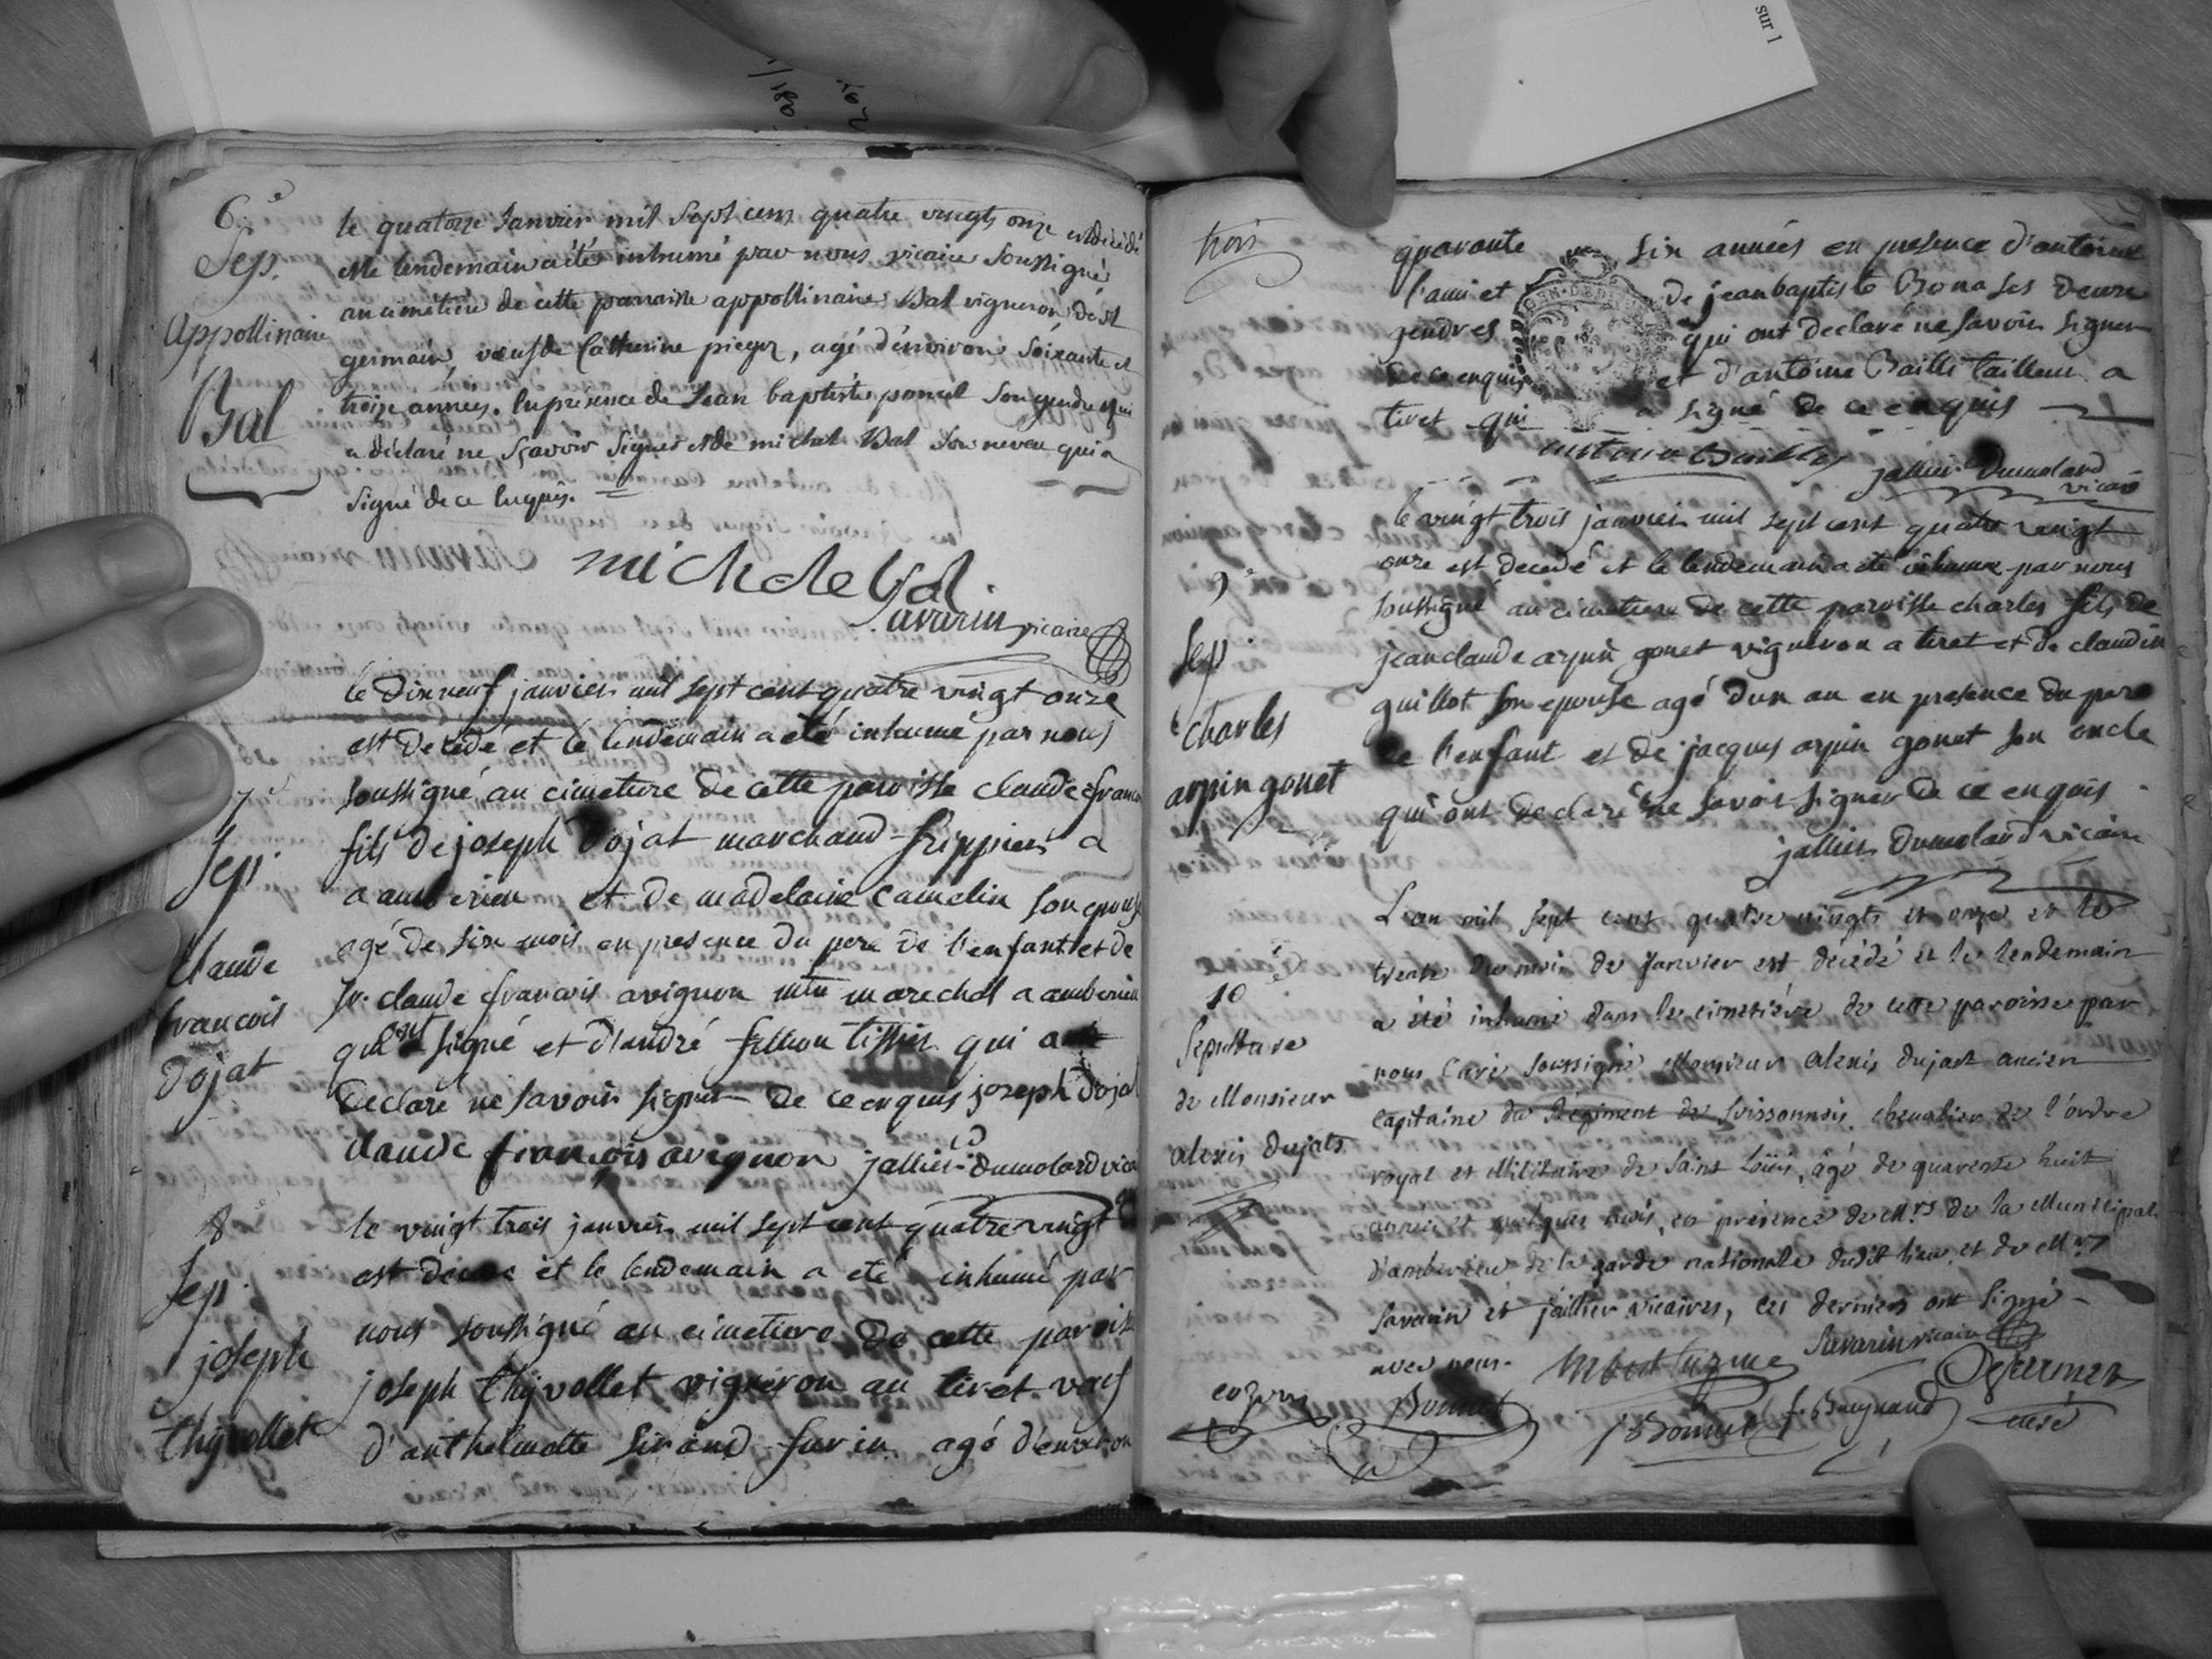 sur 1
6.e
Sep.
Appollinaire
Bal
le quatorze Janvier mil sept cens quatre vingts onze est décédé
et le lendemain a été inhumé par nous vicaire soussigné
au cimetière de cette paroisse appollinaire Bal vigneron de st
germain, veuf de Catherine pieger, agé d'environ soixante et
treize années. En présence de Jean baptiste poncet son gendre qui
a déclaré ne sçavoir signer et de michel Bal son neveu qui a
signé de ce enquis.
michel Bal.
Savarin vicaire
7.e
Sep.
Claude
francois
Dojat
le dix neuf janvier mil sept cent quatre vingt onze
est decedé et le lendemain a eté inhumé par nous
soussigné au cimetiere de cette paroisse claude franc
fils de joseph Dojat marchand frippier a
a amberieu et de madelaine Camelin son epouse
agé de six mois en presence du pere de l'enfant et de
Sr. claude francois avignon mtre marechal a amberieu
qui ont signé et d'andré fillion tissier qui a
declaré ne savoir signer de ce enquis joseph Dojat
claude francois avignon jallier Dumolard vica
8
Sep.
joseph
thyvollet
le vingt trois janvier mil sept cent quatre vingt
est decedé et le lendemain a eté inhumé par
nous soussigné au cimetiere de cette paroiss
joseph thyvollet vigneron au tiret veuf
d'anthelmette Sirand furin agé d'environ
trois
quarante six années en presence d'antoine
l'ami et de jean baptiste Brona ses deux
gendres qui ont declaré ne savoir signer
de ce enquis et d'antoine Bailli tailleur a
tiret qui a signé de ce enquis
antoine Bailly
jallier Dumolard
vicaire
9e
Sep.
charles
arpin gonet
le vingt trois janvier mil sept cent quatre vingt
onze est decedé et le lendemain a eté inhumé par nous
soussigné au cimetiere de cette paroisse charles fils de
jean claude arpin gonet vigneron a tiret et de claudine
guillot son epouse agé d'un an en presence du pere
de l'enfant et de jacques arpin gonet son oncle
qui ont declaré ne savoir signer de ce enquis
jallier Dumolard vicaire
10e
Sepulture
de Monsieur
alexis Dujats
L'an mil sept cent quatre vingts et onze et le
trente du mois de Janvier est décédé et le lendemain
a été inhumé dans le cimetière de cette paroisse par
nous Curé soussigné Monsieur alexis dujast ancien
capitaine du Régiment de soissonnois, chevalier de l'ordre
royal et Militaire de Saint Loüis, âgé de quarante huit
années et quelques mois, en présence de Mrs de la Municipal.
d'amberieu de la garde nationale dudit lieu, et de Mrs
Savarin et jallier vicaires, ces derniers ont signé
avec nous.
Savarin vicaire
Bonnet
Bonnet
curé